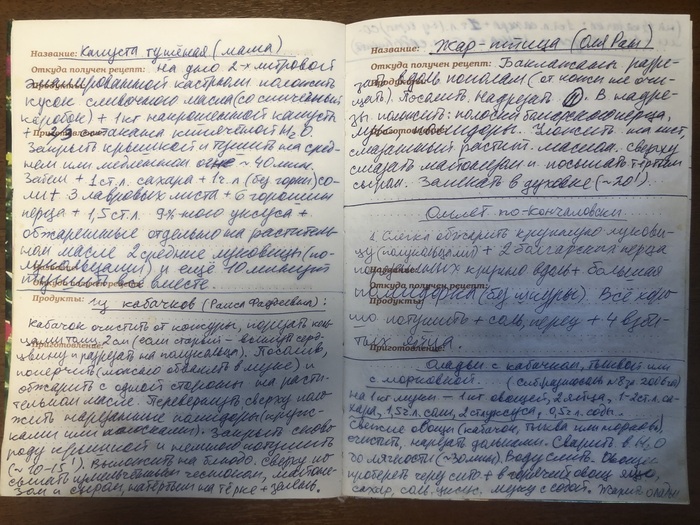 Название: Капуста тушёная (мама)
Откуда получен рецепт: На дно 2-х литровой
эмалированной кастрюли положить
кусок сливочного масла (со спичечный
коробок) + 1 кг нашинкованной капусты
стакана кипячёной H₂O.
Закрыть крышкой и тушить на сред-
нем или медленном огне ~ 40 мин.
Затем + 1 ст.л. сахара + 1 ч.л (без горки) со-
ли + 3 лавровых листа + 6 горошин
перца + 1,5 ст.л. 9%-ного уксуса +
обжаренные отдельно на раститель-
ном масле 2 средние луковицы (по-
лукольцами) и ещё 10 минут
всё вместе.
Продукты: из кабачков (Раиса Фадеевна):
Кабачок очистить от кожуры, порезать коль-
цами толщ. 2 см (если старый - вынуть серд-
цевину и разрезать на полукольца). Посолить,
поперчить (можно обвалять в муке) и
обжарить с одной стороны на расти-
тельном масле. Перевернуть, сверху поло-
жить нарезанные помидоры (круж-
ками или полосками). Закрыть сково-
роду крышкой и немного потушить
(~ 10-15'). Выложить на блюдо. Сверху по-
сыпать чесноком, майоне-
зом и сыром, натёртым на тёрке + зелень.
Название: Жар-птица (Оля Рам)
Откуда получен рецепт: Баклажаны разре-
зать вдоль пополам (от кожи не очи-
щать). Посолить. Надрезать. В надре-
зы положить: полоски болгарского перца,
помидоры. Уложить на лист,
смазанный растит. маслом, сверху
смазать майонезом и посыпать тёртым
сыром. Запекать в духовке (~20').
Омлет по-Кончаловски
Слегка обжарить крупную лукови-
цу (полукольцами) + 2 болгарских перца
крупно вдоль + большая
Название:
Откуда получен рецепт:
помидорка (без шкуры). Всё хоро-
Продукты:
шо потушить + соль, перец + 4 взби-
тых яйца.
Приготовление:
Оладьи с кабачком, тыквой или
с морковкой. (№8 2006г)
на 1 кг муки - 1 кг овощей, 2 яйца, 1-2 ст.л. са-
хара, 1,5 ч.л. соли, 2 ст. уксуса, 0,5 ч.л. соды.
Свежие овощи (кабачок, тыква или морковь)
очистить, нарезать дольками. Сварить в H₂O
до мягкости (~30мин). Воду слить. Овощи
протереть через сито + в горячий овощ яйцо,
сахар, соль, уксус, муку с содой. Жарить оладьи